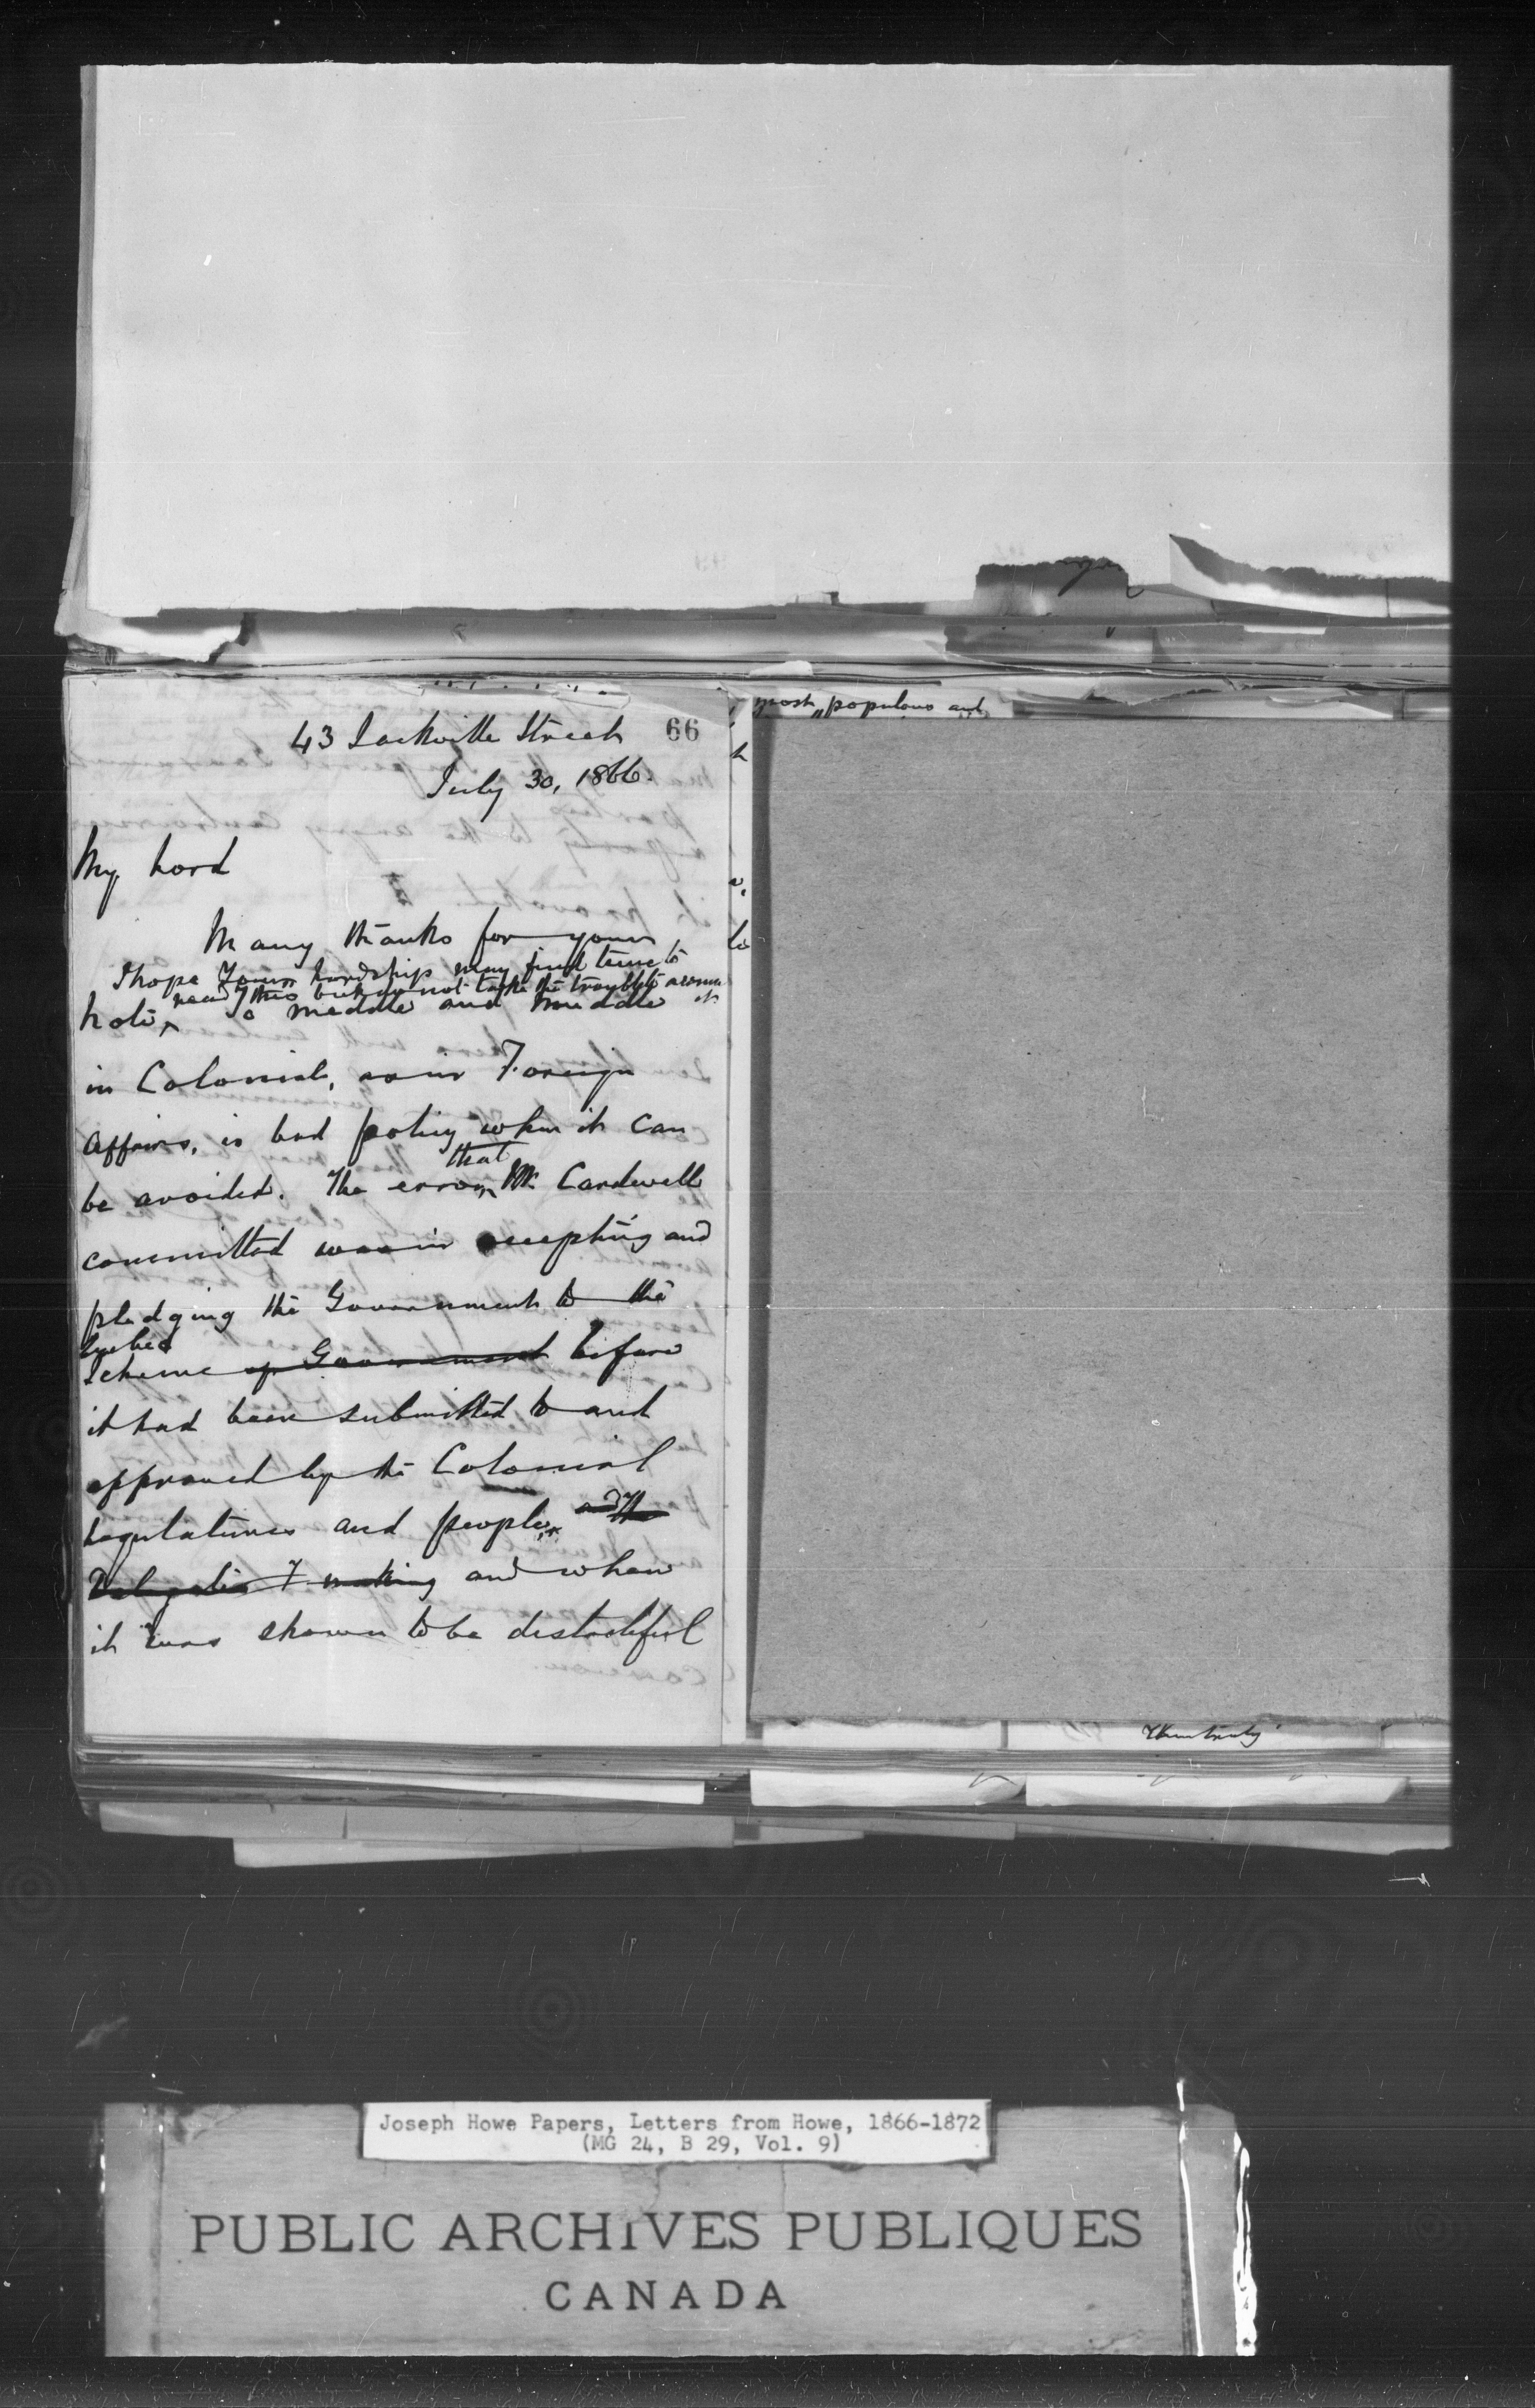 most populous and
43 Sackville Street 66
July 30, 1866.
My Lord
Many thanks for your
I hope Your Lordship may find time to
read this but do not take the trouble to answer it
note, To meddle and muddle
in Colonial, as in Foreign
Affairs, is bad policy when it can
that
be avoided. The error Mr. Cardwell
committed was in accepting and
pledging the Government to the
Quebec
Scheme of Government before
it had been submitted to and
approved by the Colonial
Legislatures and people, and the
Delegation & making and when
it was shown to be distasteful
to
Joseph Howe Papers, Letters from Howe, 1866-1872
(MG 24, B 29, Vol. 9)
PUBLIC ARCHIVES PUBLIQUES
CANADA